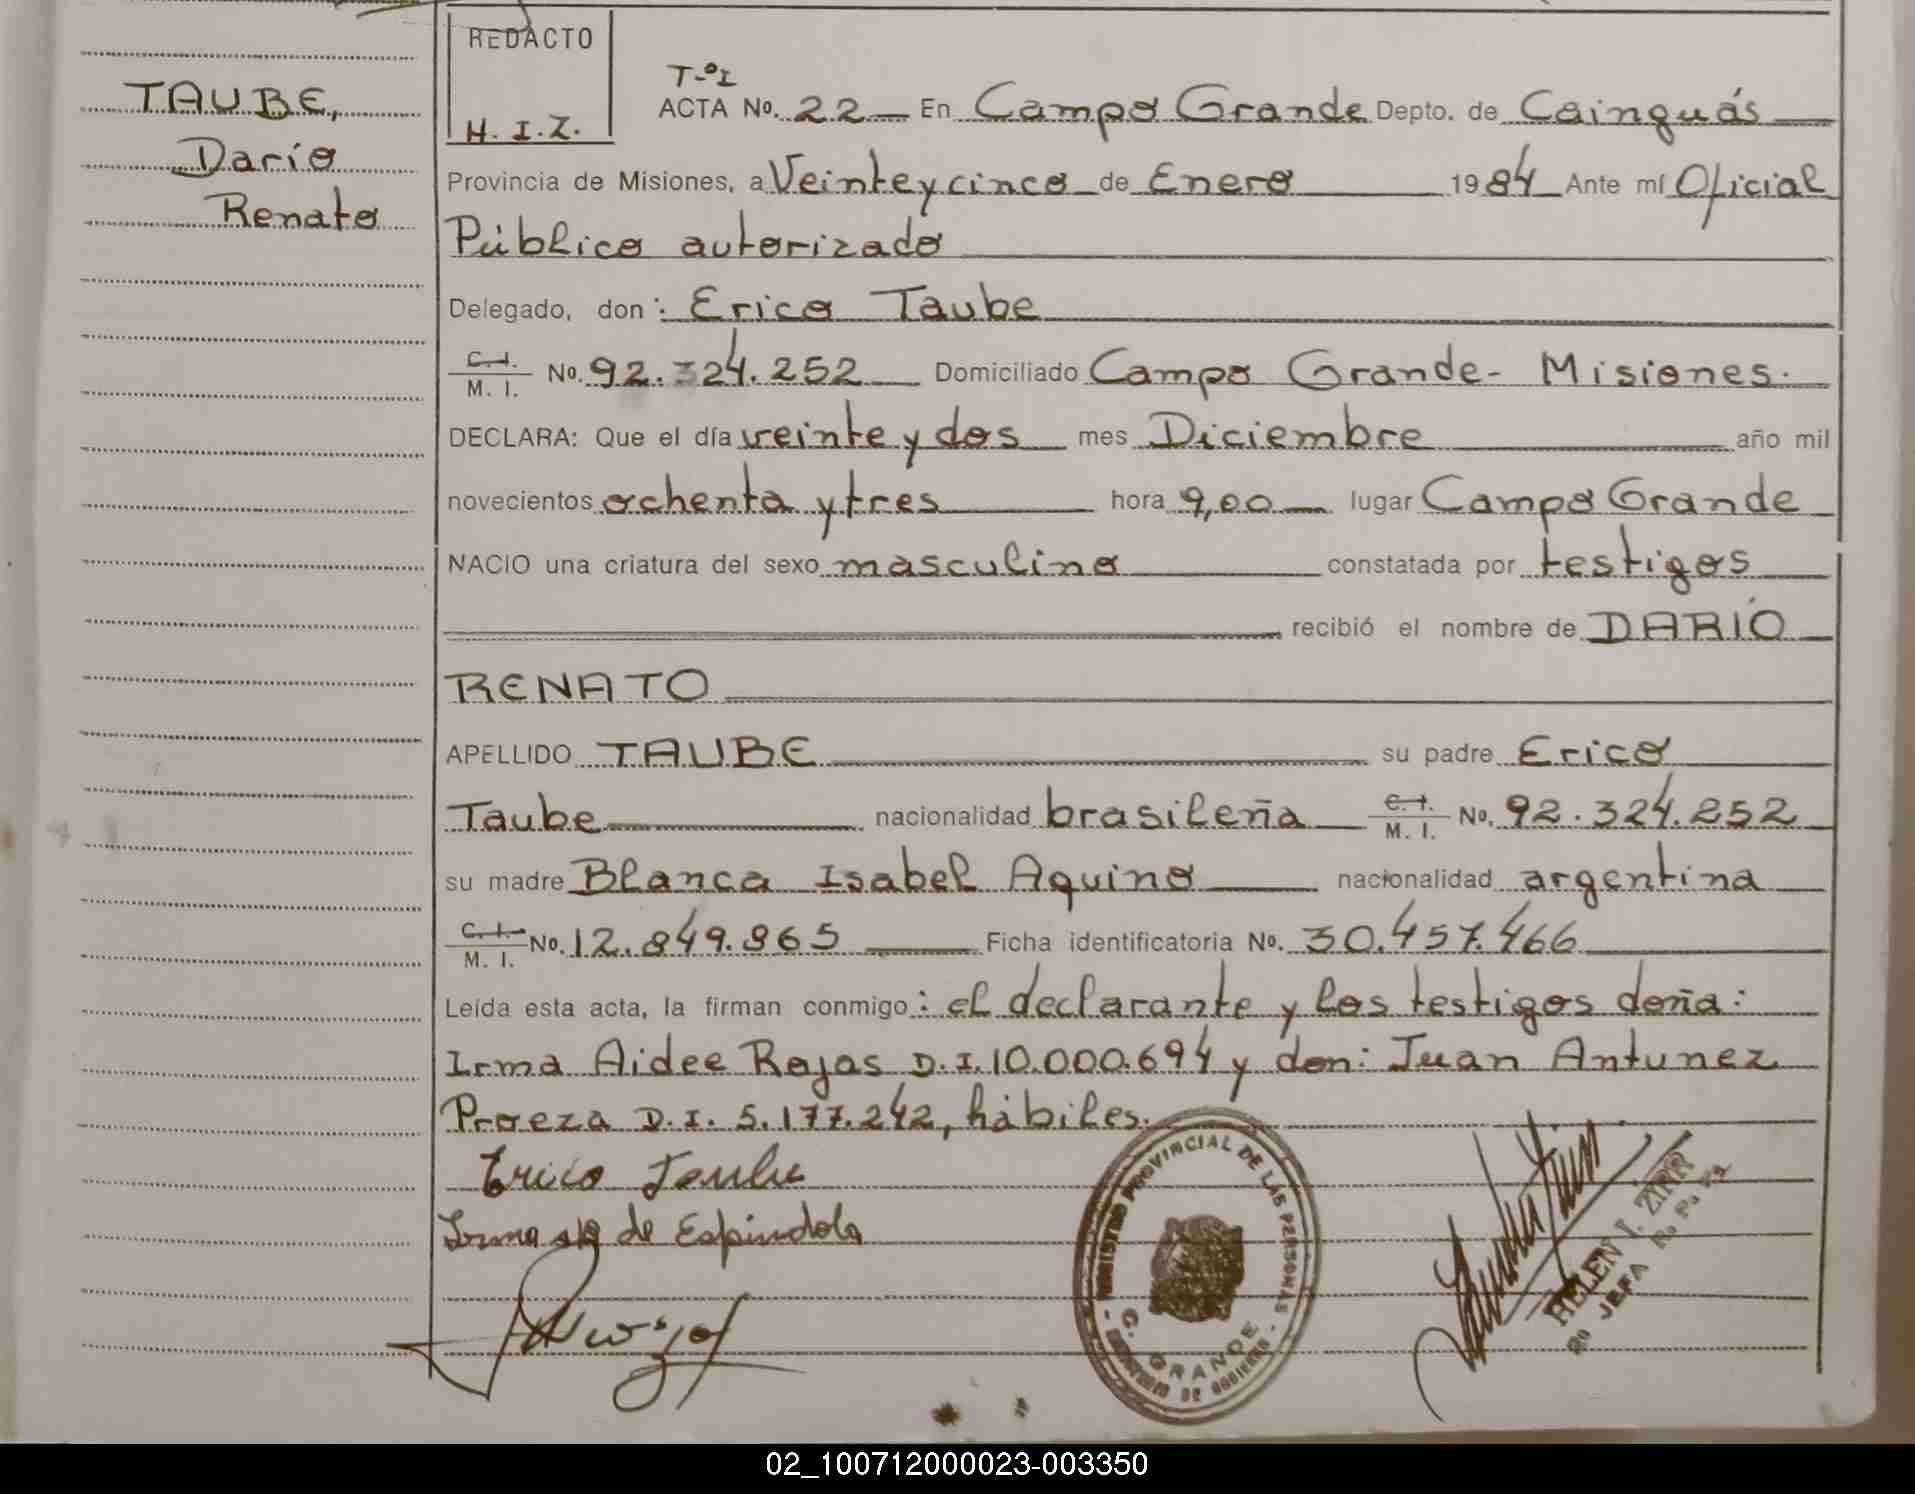 TAUBE,
Darío
Renato
REDACTO
H. I. Z.
T-ºI
ACTA No. 22 — En Campo Grande Depto. de Cainguás
Provincia de Misiones, a Veinte y cinco de Enero 1984 Ante mí Oficial
Público autorizado
Delegado, don: Erico Taube
C. I. M. I. No. 92.324.252 Domiciliado Campo Grande - Misiones.
DECLARA: Que el día veinte y dos mes Diciembre año mil
novecientos ochenta y tres hora 9,00 lugar Campo Grande
NACIO una criatura del sexo masculino constatada por testigos
recibió el nombre de DARÍO
RENATO
APELLIDO TAUBE su padre Erico
Taube nacionalidad brasileña C. I. M. I. No. 92.324.252
su madre Blanca Isabel Aquino nacionalidad argentina
C. I. M. I. No. 12.849.865 Ficha identificatoria No. 30.457.466
Leída esta acta, la firman conmigo: el declarante y los testigos doña:
Irma Aidee Rojas D.I. 10.000.694 y don: Juan Antunez
Proeza D.I. 5.177.242, hábiles.
Erico Taube
Irma de Espindola
REGISTRO PROVINCIAL DE LAS PERSONAS
C. GRANDE
MINISTERIO DE GOBIERNO
HELEN I. ZIRR
JEFA R. P. P.
02_100712000023-003350